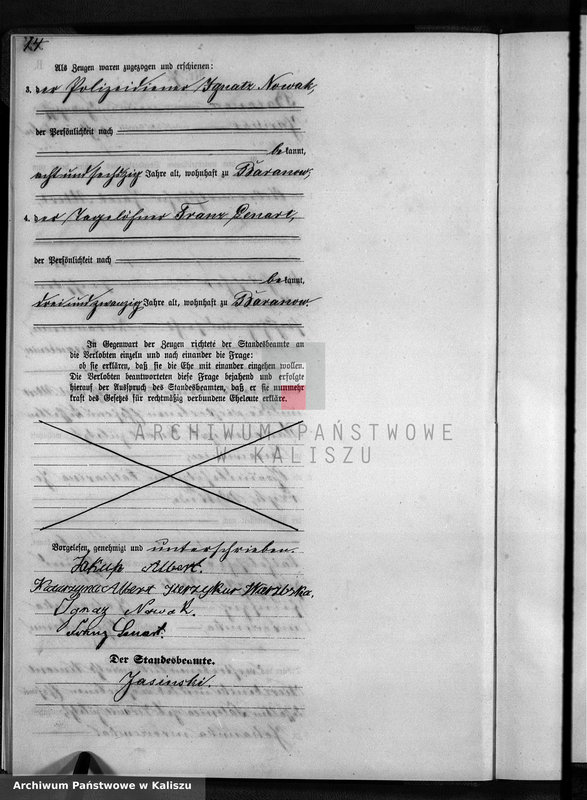 14.
Als Zeugen waren zugezogen und erschienen:
3. der Polizeidiener Ignatz Nowak,
der Persönlichkeit nach
bekannt,
acht und sechzig Jahre alt, wohnhaft zu Baranow,
4. der Tagelöhner Franz Lenart,
der Persönlichkeit nach
bekannt,
drei und zwanzig Jahre alt, wohnhaft zu Baranow.
In Gegenwart der Zeugen richtete der Standesbeamte an
die Verlobten einzeln und nach einander die Frage:
ob sie erklären, daß sie die Ehe mit einander eingehen wollen.
Die Verlobten beantworteten diese Frage bejahend und erfolgte
hierauf der Ausspruch des Standesbeamten, daß er sie nunmehr
kraft des Gesetzes für rechtmäßig verbundene Eheleute erkläre.
ARCHIWUM PAŃSTWOWE
W KALISZU
Vorgelesen, genehmigt und unterschrieben.
Jakup Albert.
Katarzyna Albert
Ignaz Nowak.
Lenart.
Der Standesbeamte.
Jasinski.
Archiwum Państwowe w Kaliszu
Archiwum Państwowe w Kaliszu